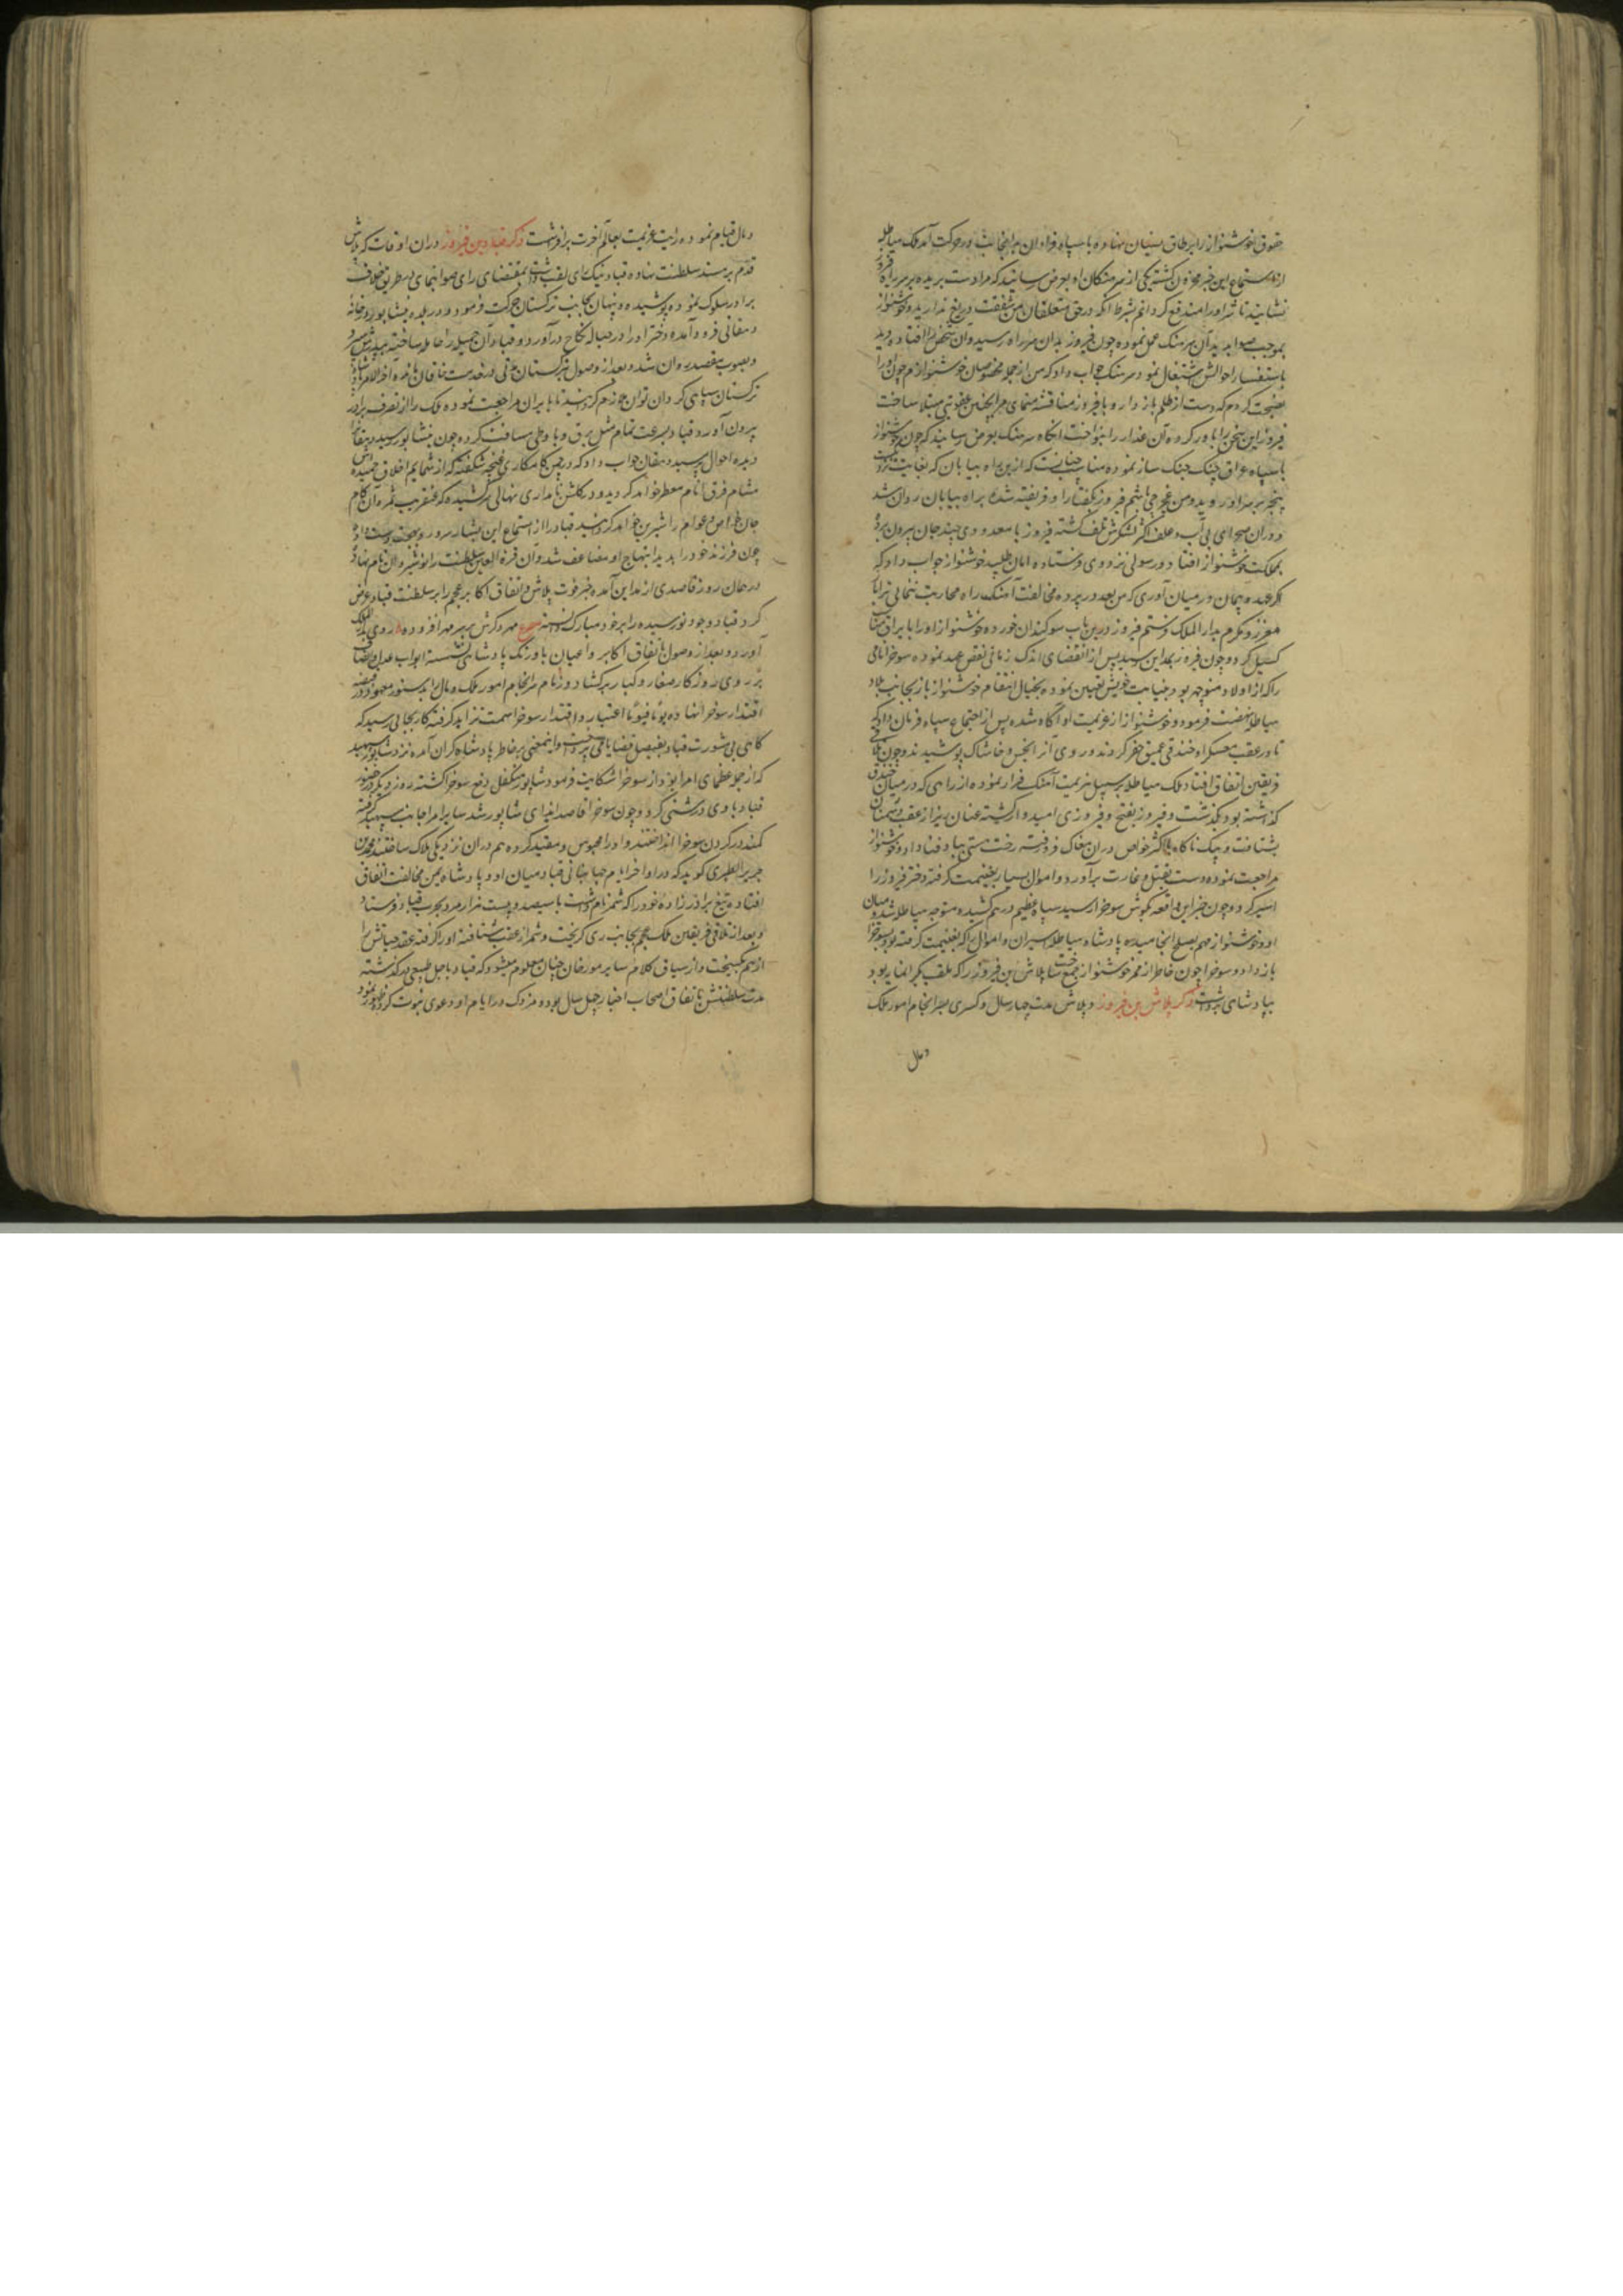 حقوق خوشنواز را بر طاق نسیان نهاده با سپاه فراوان بدانجانب در حرکت آمد ملک هیاطله
از استماع این خبر محزون کشته یکی از سرهنکان او بعرض رسانید که مرا دست بریده بر سر راه فیروز
نشانید تا شر او را مندفع کردانم بشرط آنکه در حق متعلقان من شفقت دریغ ندارید و خوشنواز
بموجب صوابدید آن سرهنک عمل نموده چون فیروز بدان سر راه رسید و آن شخص را افتاده دید
باستفسار احوالش اشتغال نمود سرهنک جواب داد که من از جمله مخصوصان خوشنوازم چون او را
نصیحت کردم که دست از ظلم باز دار و با فیروز منافسه منمای مرا بچنین عقوبتی مبتلا ساخت
فیروز این سخن را باور کرده آن غدار را بنواخت آنکاه سرهنک بعرض رسانید که چون خوشنواز
با سپاه عراق چنک جنک ساز نموده مناسب چنانست که ازین راه بیابان که بغایت نزدیکست
بیخبر بر سر او روید و من غجرجی باشم فیروز بکفتار او فریفته شده براه بیابان روان شد
و دران صحرای بی آب و علف اکثر لشکرش تلف کشته فیروز با معدودی چند جان بیرون برده
بمملکت خوشنواز افتاد و رسولی نزد وی فرستاده امان طلبید خوشنواز جواب داد که
اکر عهد و پیمان در میان آوری که من بعد در پرده مخالفت آهنک راه محاربت ننمائی ترا
معزز و مکرم بدار الملک فرستم فیروز درین باب سوکندان خورده خوشنواز او را با یراق
کسیل کرد و چون فیروز بمداین رسید پس از انقضای اندک زمانی نقض عهد نموده سوخرا نامی
را که از اولاد منوچهر بود بنیابت خویش تعیین نموده بخیال انتقام خوشنواز باز بجانب بلاد
هیاطله نهضت فرمود و خوشنواز از عزیمت او آکاه شده پس از اجتماع سپاه فرمان داد که
تا در عقب معسکر او خندقی عمیق حفر کردند و روی آنرا بخس و خاشاک پوشیدند و چون تلاقی
فریقین اتفاق افتاد ملک هیاطله بر سبیل هزیمت آهنک فرار نموده از راهی که در میان خندق
کذاشته بود بکذشت و فیروز بفتح و فیروزی امیدوار کشته عنان ریز از عقب دشمنان
بشتافت و بیک ناکاه با اکثر خواص دران مغاک فرو رفته رخت هستی بباد فنا داد و خوشنواز
مراجعت نموده دست بقتل و غارت برآورد و اموال بسیار بغنیمت کرفته دختر فیروز را
اسیر کرد و چون خبر این واقعه بکوش سوخرا رسید سپاه عظیم درهم کشیده متوجه هیاطله شد و میان
او و خوشنواز مهم بصلح انجامیده پادشاه هیاطله اسیران و اموال را که بغنیمت کرفته بود بسوخرا
باز داد و سوخرا چون خاطر از ممر خوشنواز جمع ساخت بلاش بن فیروز را که ملقب بکرانمایه بود
بپادشاهی برداشت ذکر بلاش بن فیروز و بلاش مدت چهار سال و کسری بسرانجام امور ملک
و مال
و مال قیام نموده رایت عزیمت بعالم آخرت برافراشت ذکر قباد بن فیروز دران اوقات که بلاش
قدم بر مسند سلطنت نهاده قباد نیک رای لقب داشت بمقتضای رای صوابنمای بر طریق خلاف
برادر سلوک نموده پوشیده و پنهان بجانب ترکستان حرکت فرمود و در بلده نیشابور در خانه
دهقانی فرود آمده دختر او را در حباله نکاح درآورد و قباد آن جمیله را حامله ساخته بپدرش سپرد
و بصوب مقصد روان شد و بعد از وصول بترکستان مدتی در خدمت خاقان مانده آخر الامر پادشاه
ترکستان سپاهی کردان توان همراه کردانید تا بایران مراجعت نموده ملک را از تصرف برادر
بیرون آورد و قباد بسرعت تمام مثل برق و باد طی مسافت کرده چون بنیشابور رسید دهقانرا
دیده احوال پرسید دهقان جواب داد که در چمن کامکاری غنچه شکفته که از شمایم اخلاق حمیده اش
مشام فرق انام معطر خواهد کردید و در کلشن نامداری نهالی سرکشیده که عنقریب ثمره آن کام
جان خواص و عوام را شیرین خواهد کردانید قباد را از استماع این بشارت سرور و بهجت دست داد و
چون فرزند خود را بدید ابتهاج او مضاعف شد و آن قرة العین سلطنت را نوشیروان نام نهاد و
در همان روز قاصدی از مداین آمده خبر فوت بلاش و اتفاق اکابر عجم را بر سلطنت قباد عرض
کرد قباد وجود نورسیده را بر خود مبارک دانسته مصرع مهر دکرش بر سر مهر افزوده روی بدار الملک
آورد و بعد از وصول باتفاق اکابر و اعیان بر اورنک پادشاهی نشسته ابواب عدل و انصاف
بر روی روزکار صغار و کبار برکشاد و زمام سرانجام امور ملک و مال بدستور معهود در قبضه
اقتدار سوخرا نهاد و یوما فیوما اعتبار و اقتدار سوخرا سمت تزاید کرفته کار بجائی رسید که
کاهی بی مشورت قباد بفیصل قضایا می پرداخت و اینمعنی بر خاطر پادشاه کران آمده نزد شاپور سپهبد
که از جمله عظمای امرا بود از سوخرا شکایت فرمود شاپور متکفل دفع سوخرا کشته روز دیکر در حضور
قباد با وی درشتی کرد و چون سوخرا قاصد ایذای شاپور شد سایر امرا جانب سپهبد کرفته
کمند در کردن سوخرا انداختند و او را محبوس و مقید کرده هم دران نزدیکی هلاک ساختند محمد بن
جریر الطبری کوید که در اواخر ایام جهانبانی قباد میان او و پادشاه یمن مخالفت اتفاق
افتاده تبع برادرزاده خود را که شمر نام داشت با سیصد و بیست هزار مرد بحرب قباد فرستاد
و بعد از تلاقی فریقین ملک عجم بجانب ری کریخت و شمر از عقب شتافته او را کرفته عقد حیاتش را
از هم کسیخت و از سیاق کلام سایر مورخان چنان معلوم میشود که قباد باجل طبیعی درکذشته
مدت سلطنتش باتفاق اصحاب اخبار چهل سال بود و مزدک در ایام او دعوی نبوت کرده ظهور نمود